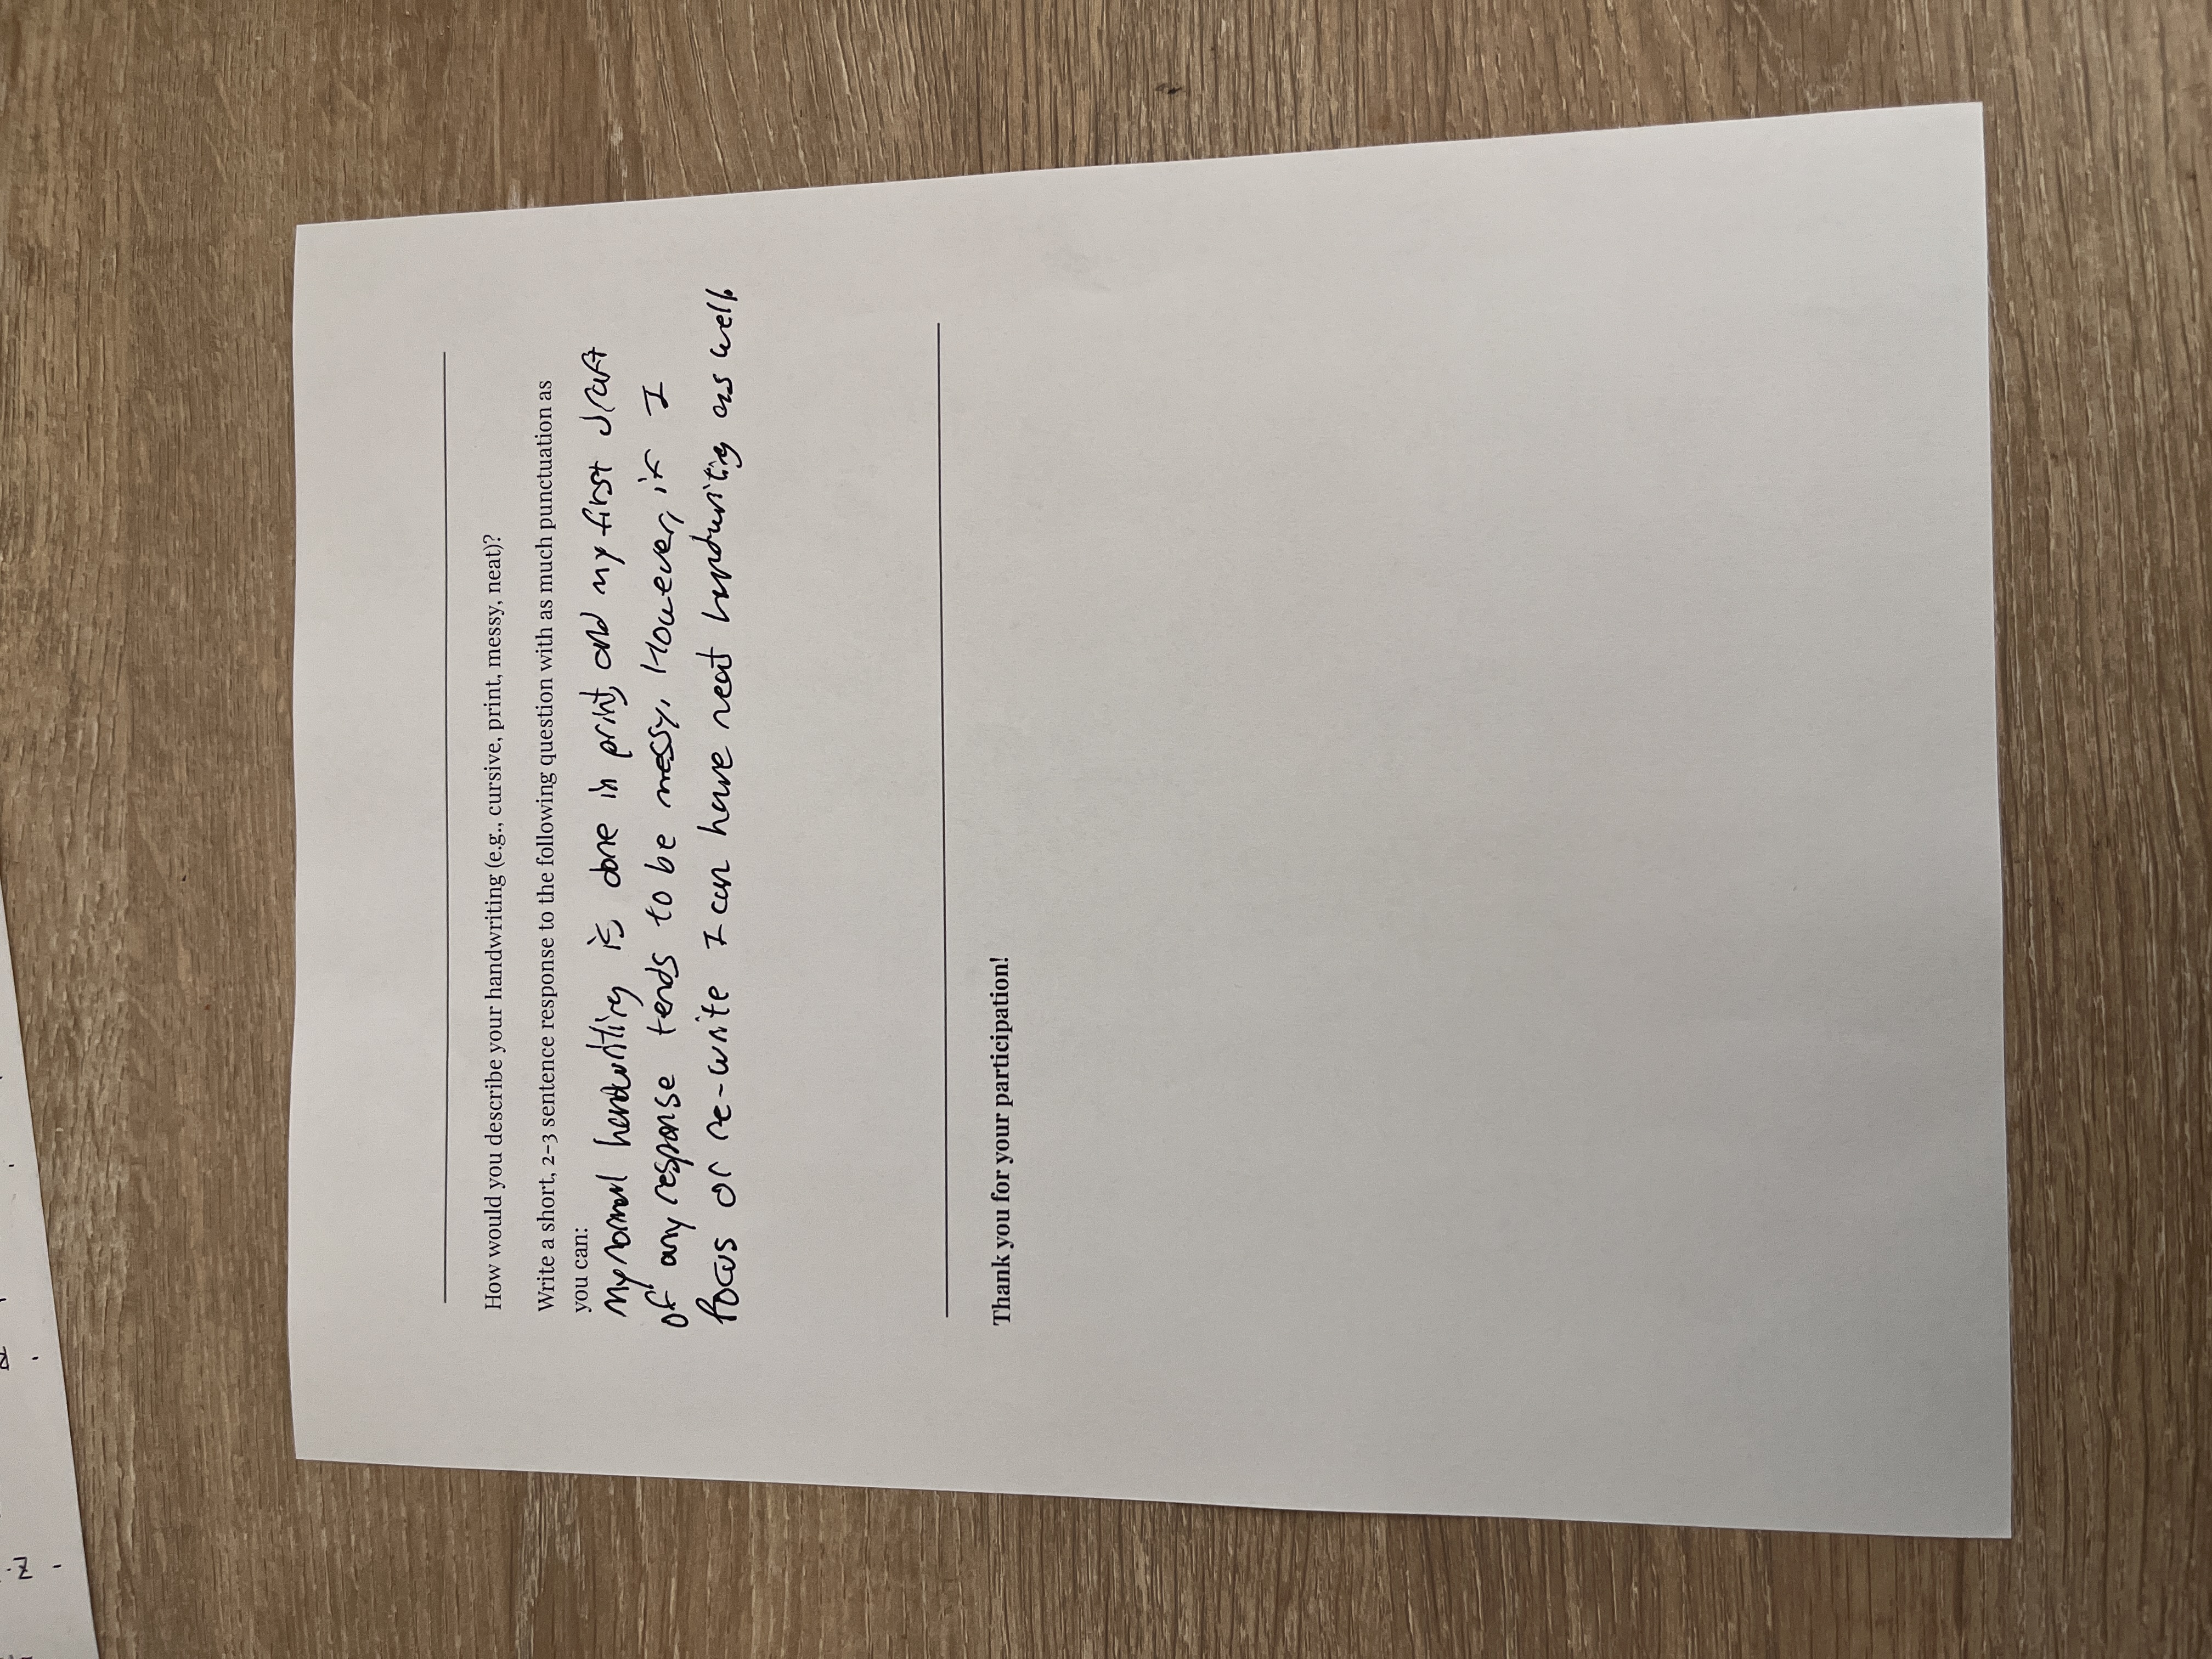 How would you describe your handwriting (e.g., cursive, print, messy, neat)?
Write a short, 2-3 sentence response to the following question with as much punctuation as
you can:
My normal handwriting is done in print, and my first draft
of any response tends to be messy. However, if I
focus or re-write I can have neat handwriting as well.
Thank you for your participation!